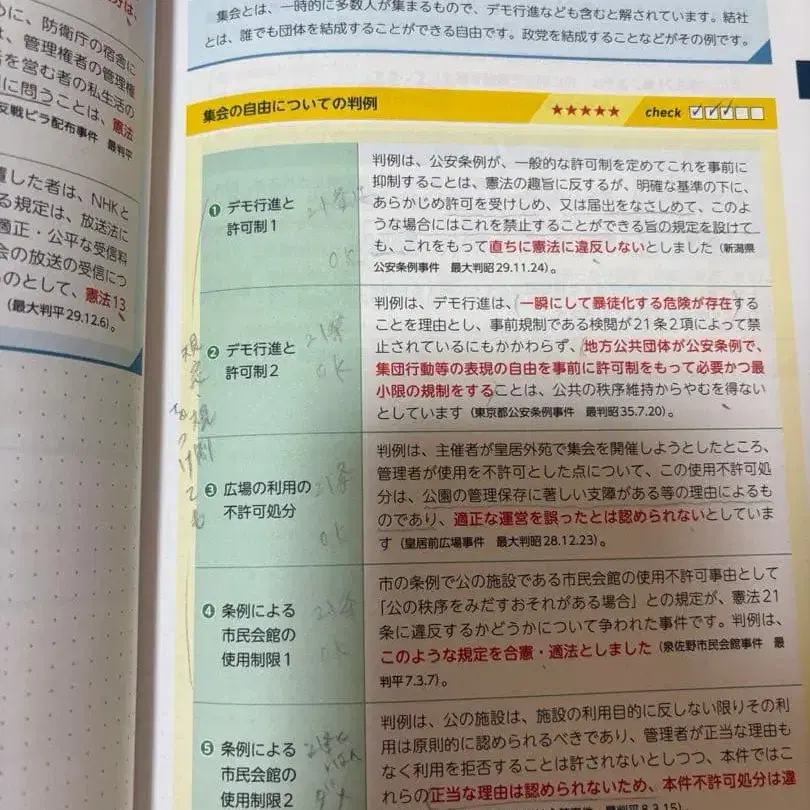 に、防衛庁の宿舎に
は、管理権者の管理権
を営む者の私生活の
に問うことは、憲法
反戦ビラ配布事件 最判平
置した者は、NHKと
る規定は、放送法に
適正・公平な受信料
会の放送の受信につ
のとして、憲法13
(最大判平29.12.6)。
集会とは、一時的に多数人が集まるもので、デモ行進なども含むと解されています。結社
とは、誰でも団体を結成することができる自由です。政党を結成することなどがその例です。
集会の自由についての判例 ★★★★★ check
❶ デモ行進と
許可制1
OK
判例は、公安条例が、一般的な許可制を定めてこれを事前に
抑制することは、憲法の趣旨に反するが、明確な基準の下に、
あらかじめ許可を受けしめ、又は届出をなさしめて、このよ
うな場合にはこれを禁止することができる旨の規定を設けて
も、これをもって直ちに憲法に違反しないとしました(新潟県
公安条例事件 最大判昭29.11.24)。
❷ デモ行進と
許可制2
21条
OK
判例は、デモ行進は、一瞬にして暴徒化する危険が存在する
ことを理由とし、事前規制である検閲が21条2項によって禁
止されているにもかかわらず、地方公共団体が公安条例で、
集団行動等の表現の自由を事前に許可制をもって必要かつ最
小限の規制をすることは、公共の秩序維持からやむを得ない
としています(東京都公安条例事件 最判昭35.7.20)。
❸ 広場の利用の
不許可処分
21条
OK
判例は、主催者が皇居外苑で集会を開催しようとしたところ、
管理者が使用を不許可とした点について、この使用不許可処
分は、公園の管理保存に著しい支障がある等の理由によるも
のであり、適正な運営を誤ったとは認められないとしていま
す(皇居前広場事件 最大判昭28.12.23)。
❹ 条例による
市民会館の
使用制限1
21条
OK
市の条例で公の施設である市民会館の使用不許可事由として
「公の秩序をみだすおそれがある場合」との規定が、憲法21
条に違反するかどうかについて争われた事件です。判例は、
このような規定を合憲・適法としました(泉佐野市民会館事件 最
判平7.3.7)。
❺ 条例による
市民会館の
使用制限2
判例は、公の施設は、施設の利用目的に反しない限りその利
用は原則的に認められるべきであり、管理者が正当な理由も
なく利用を拒否することは許されないとしつつ、本件ではこ
れらの正当な理由は認められないため、本件不許可処分は違